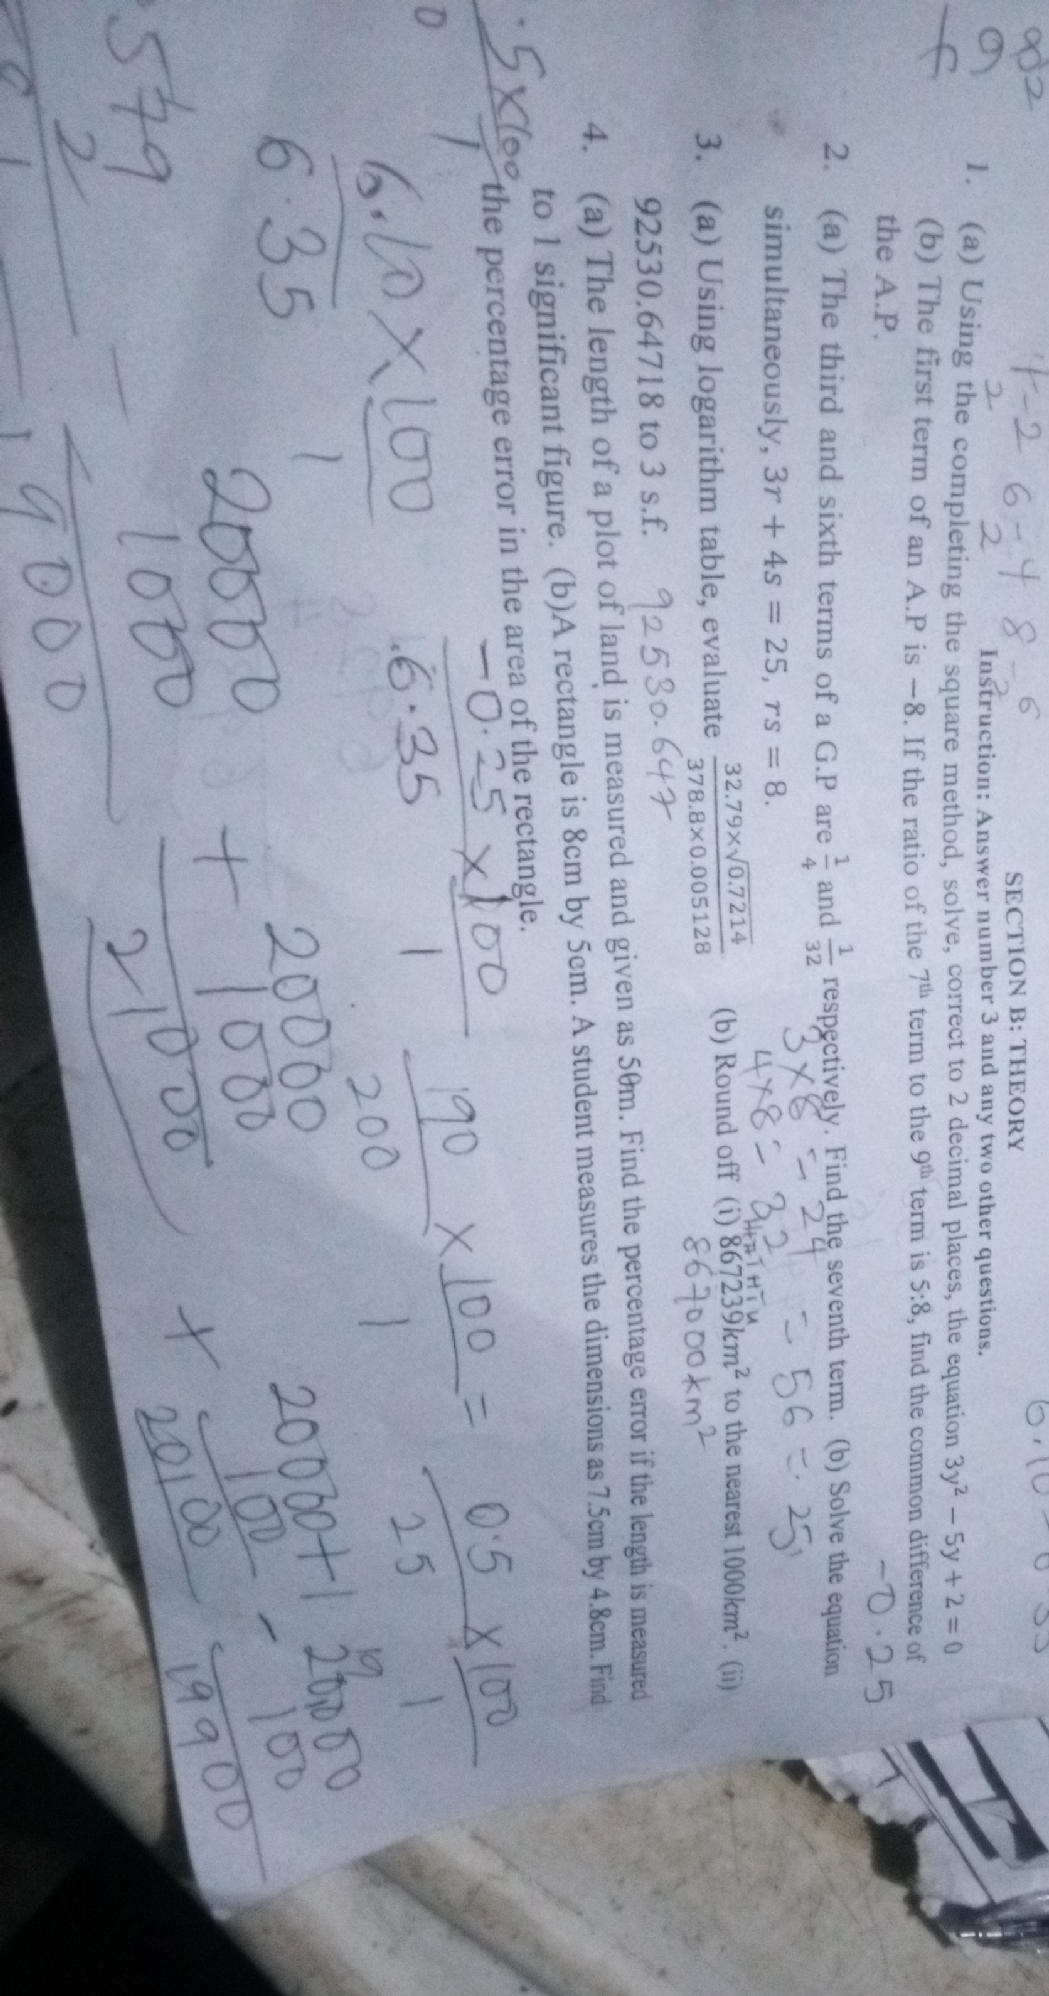 SECTION B: THEORY
Instruction: Answer number 3 and any two other questions.
1. (a) Using the completing the square method, solve, correct to 2 decimal places, the equation 3y² − 5y + 2 = 0
(b) The first term of an A.P is −8. If the ratio of the 7th term to the 9th term is 5:8, find the common difference of
the A.P.
-0.25
2. (a) The third and sixth terms of a G.P are 1/4 and 1/32 respectively. Find the seventh term. (b) Solve the equation
3×8 = 24
simultaneously, 3r + 4s = 25, rs = 8.
4×8 = 32 = 56 = 25
3. (a) Using logarithm table, evaluate 32.79×√0.7214 / 378.8×0.005128 (b) Round off (i) 867239km² to the nearest 1000km². (ii)
867000km²
92530.64718 to 3 s.f. 92530.647
4. (a) The length of a plot of land is measured and given as 50m. Find the percentage error if the length is measured
to 1 significant figure. (b)A rectangle is 8cm by 5cm. A student measures the dimensions as 7.5cm by 4.8cm. Find
the percentage error in the area of the rectangle.
.5×100
1
-0.25 × 100
6.35 1
190 × 100 = 0.5 × 100
200 1 25 1
6.10 × 100
6.35 1
20000 20000 20000+1 20000
1000 + 1000 100 - 100
19000 21000 + 20100 19900
579
2